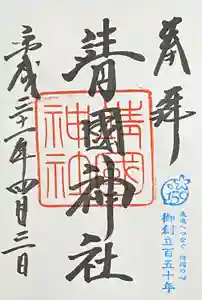 奉拝
靖國神社
靖國神社
平成三十一年四月三日
150
未来へつなぐ 靖国の心
御創立百五十年